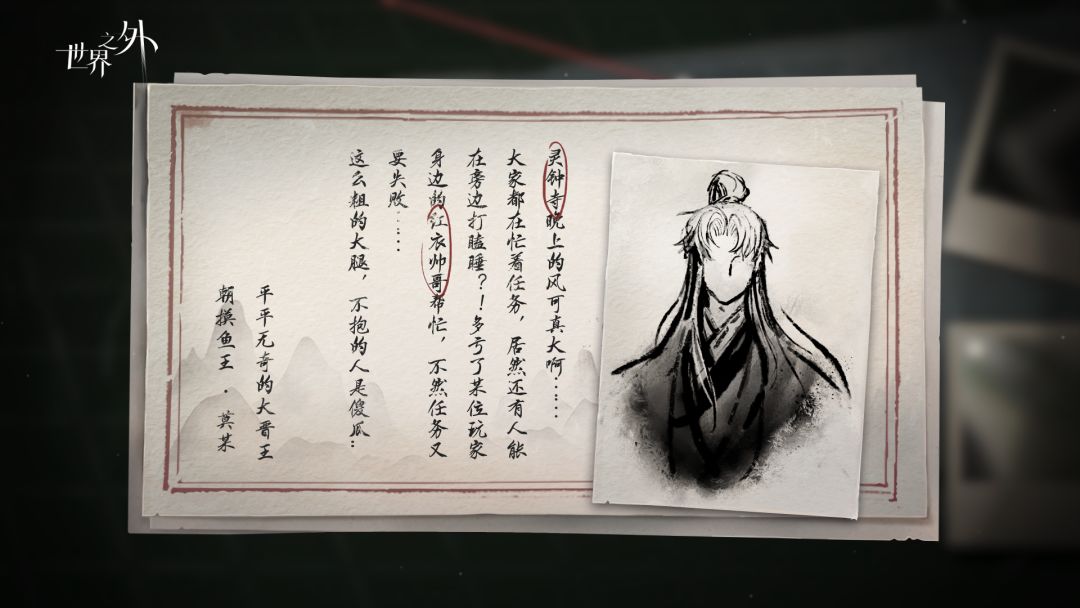 世界之外
灵钟寺晚上的风可真大啊……
大家都在忙着任务，居然还有人能
在旁边打瞌睡？！多亏了某位玩家
身边的红衣帅哥帮忙，不然任务又
要失败……
这么粗的大腿，不抱的人是傻瓜…
平平无奇的大晋王
朝摸鱼王·莫某